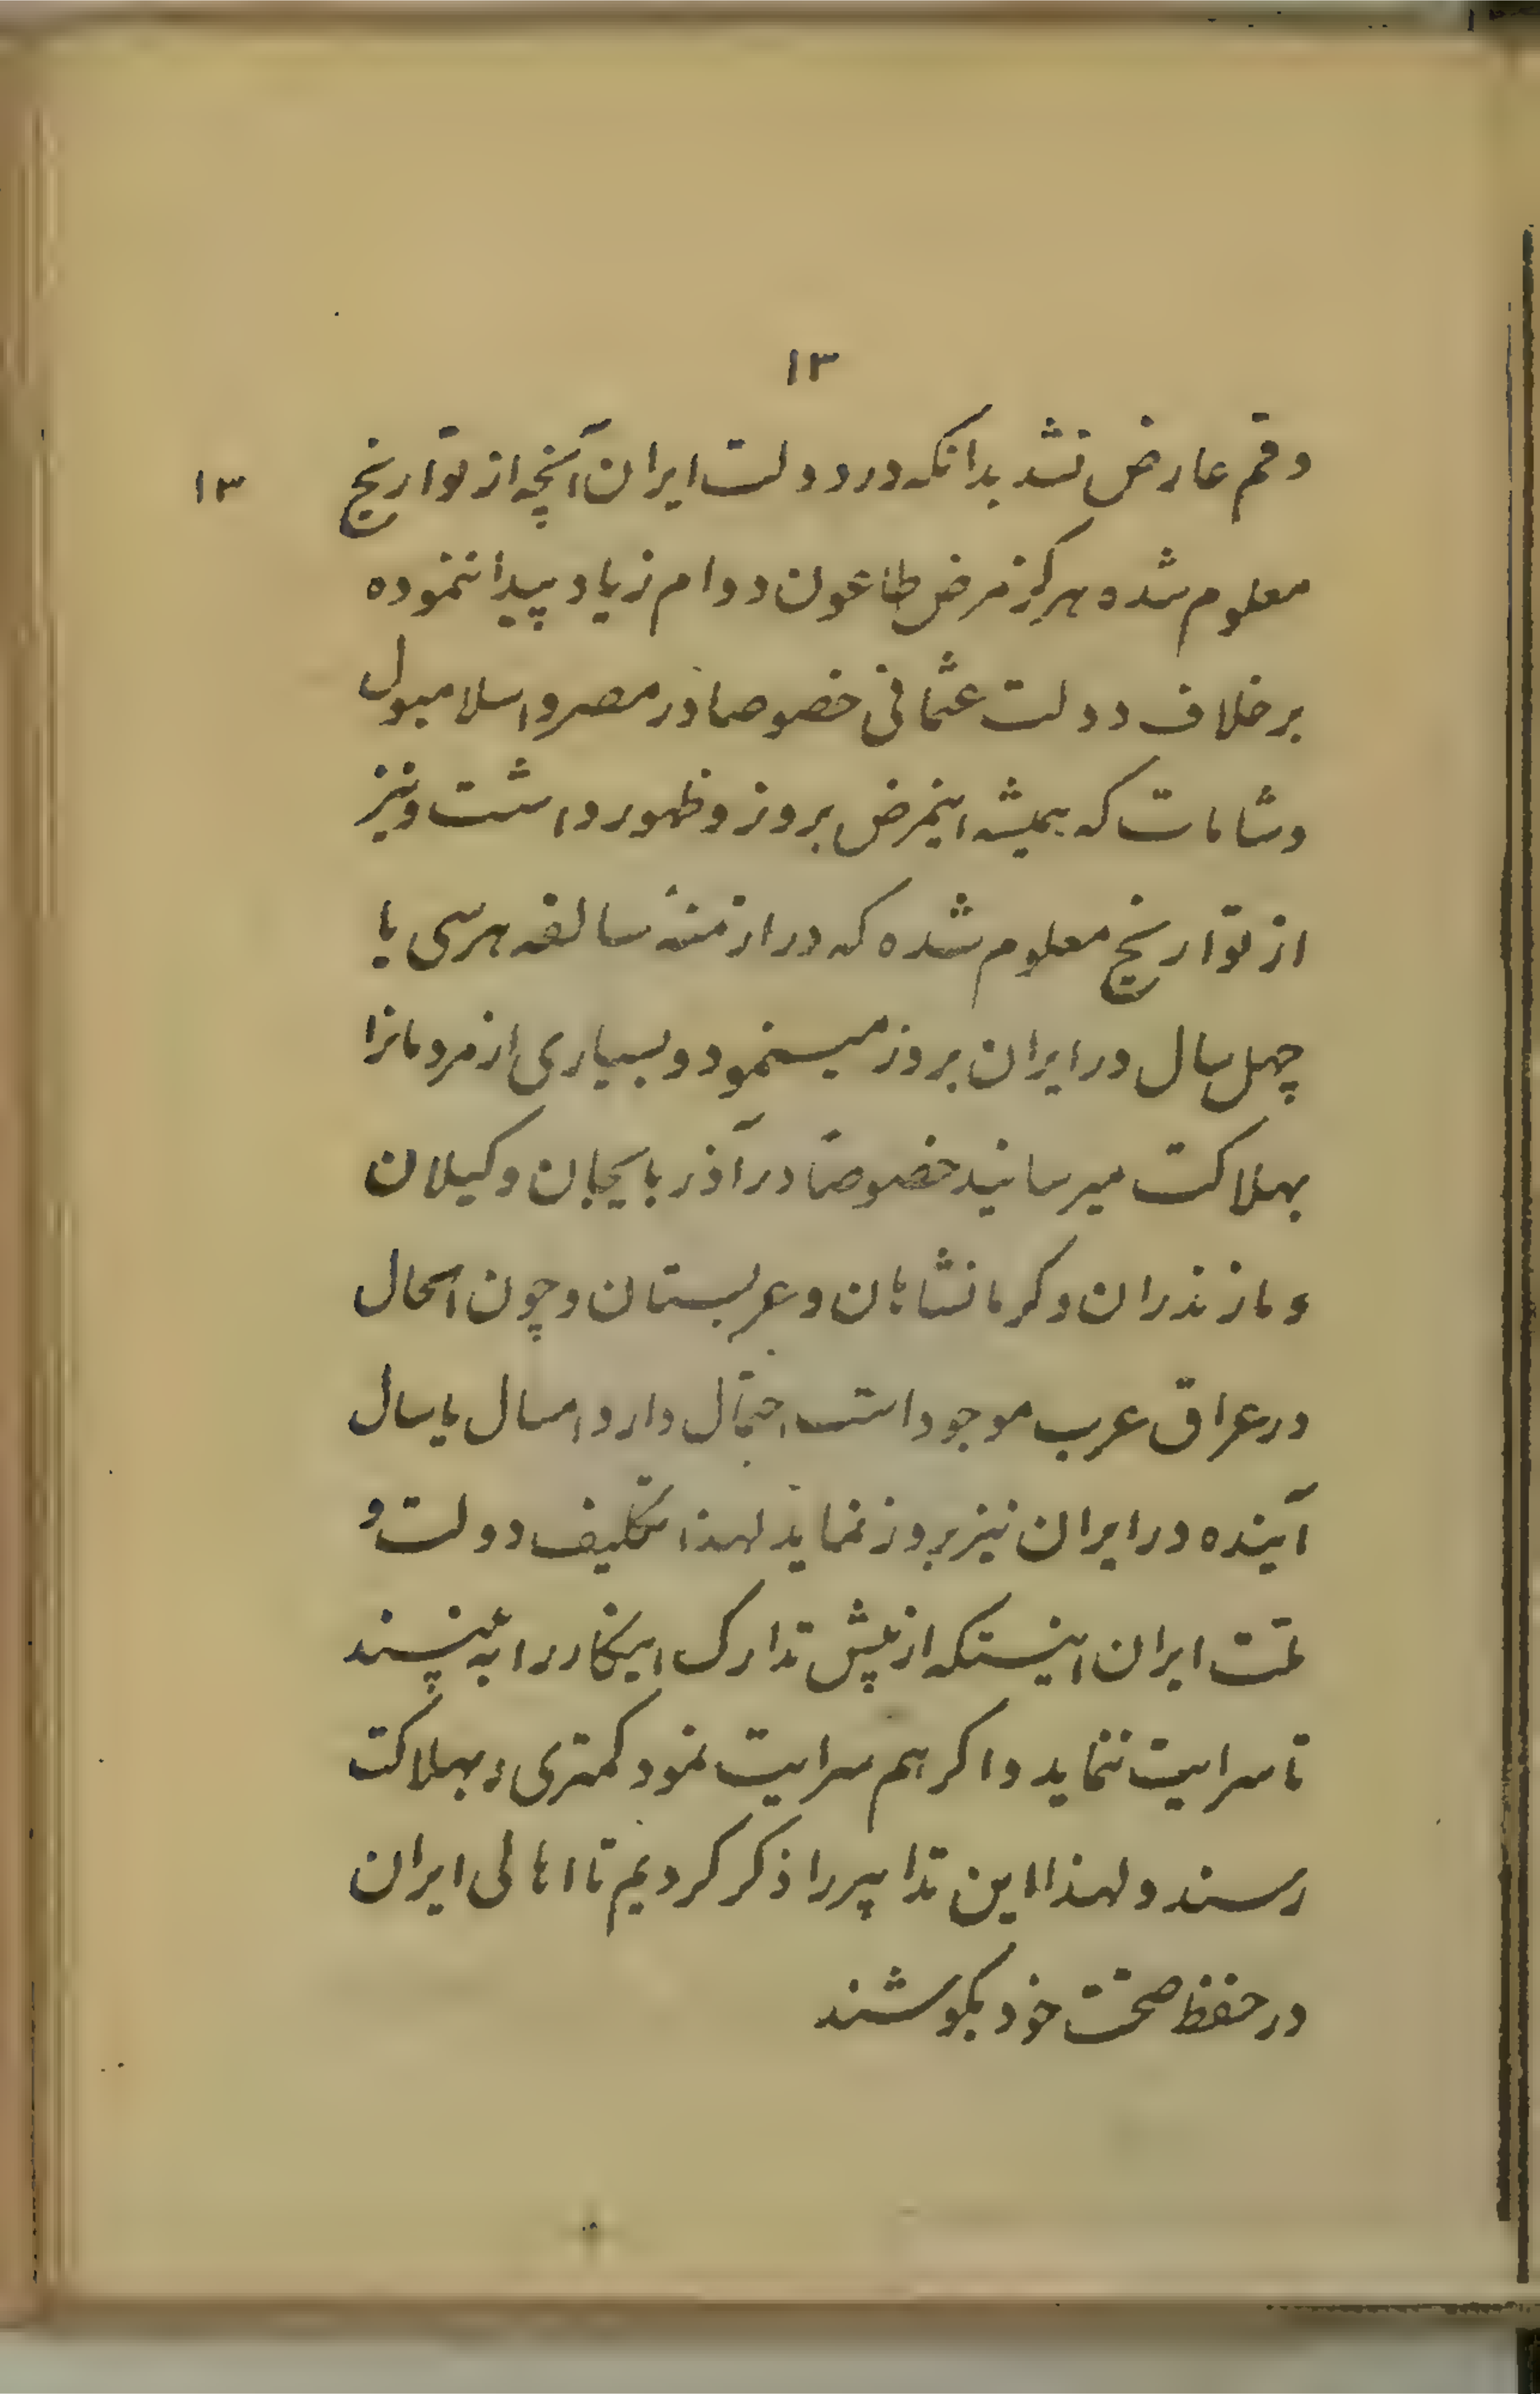 ۱۳
۱۳
دقم عارض نشد بدانکه در دولت ایران آنچه از تواریخ
معلوم شده هرگز مرض طاعون دوام زیاد پیدا ننموده
برخلاف دولت عثمانی خصوصا در مصر و اسلامبول
و شامات که همیشه اینمرض بروز و ظهور داشت و نیز
از تواریخ معلوم شده که در ازمنهٔ سالفه هر سی یا
چهل سال در ایران بروز میـنمود و بسیاری از مردمانرا
بهلاکت میرسانید خصوصاً در آذربایجان و کیلان
و مازندران و کرمانشاهان و عربستان و چون الحال
در عراق عرب موجود است احتمال دارد امسال یا سال
آینده در ایران نیز بروز نماید لهذا تکلیف دولت و
ملت ایران اینستکه از پیش تدارک اینکار را به بینند
تا سرایت ننماید و اکر هم سرایت نمود کمتری بهلاکت
رسند و لهذا این تدابیر را ذکر کردیم تا اهالی ایران
در حفظ صحت خود بکوشند